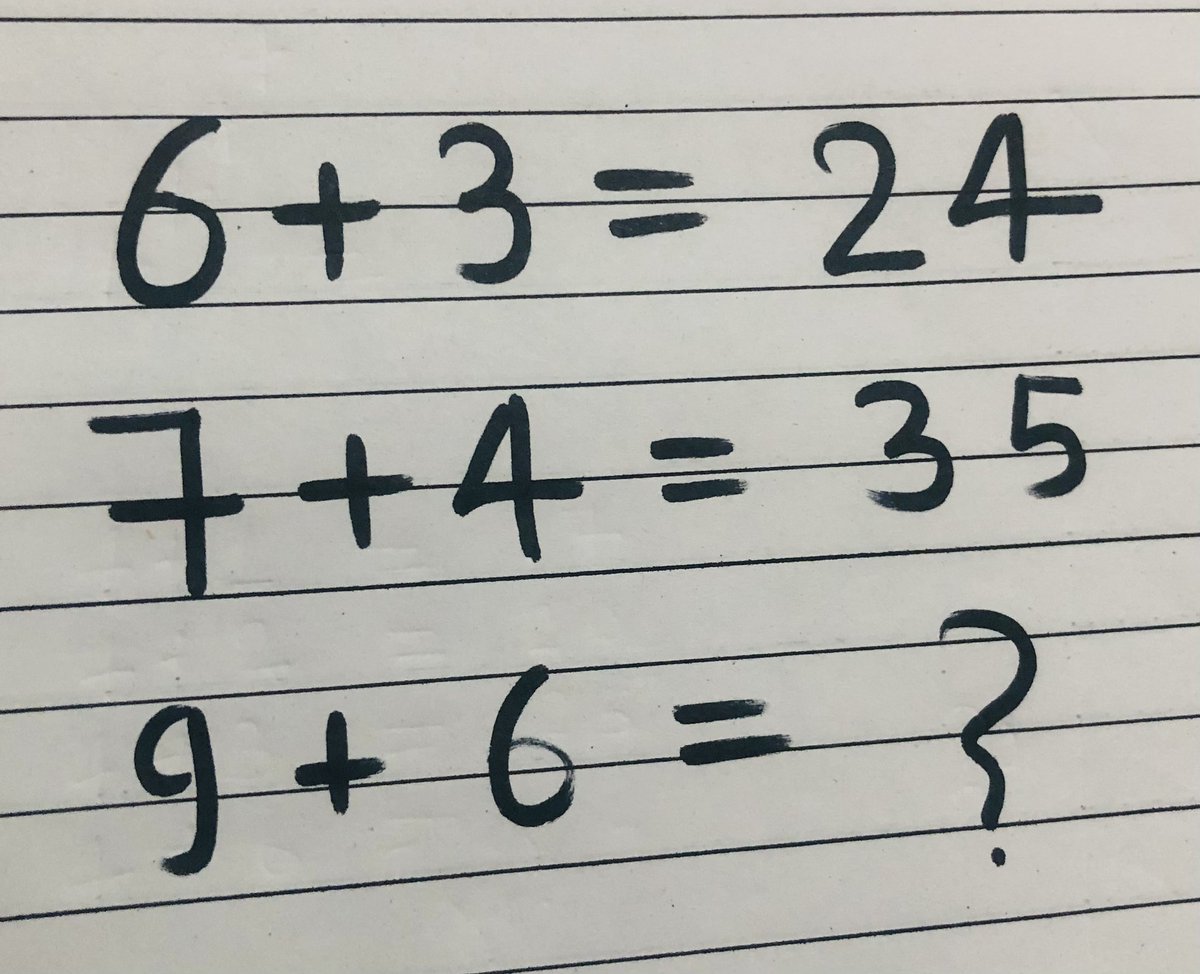 6 + 3 = 24
7 + 4 = 35
9 + 6 = ?